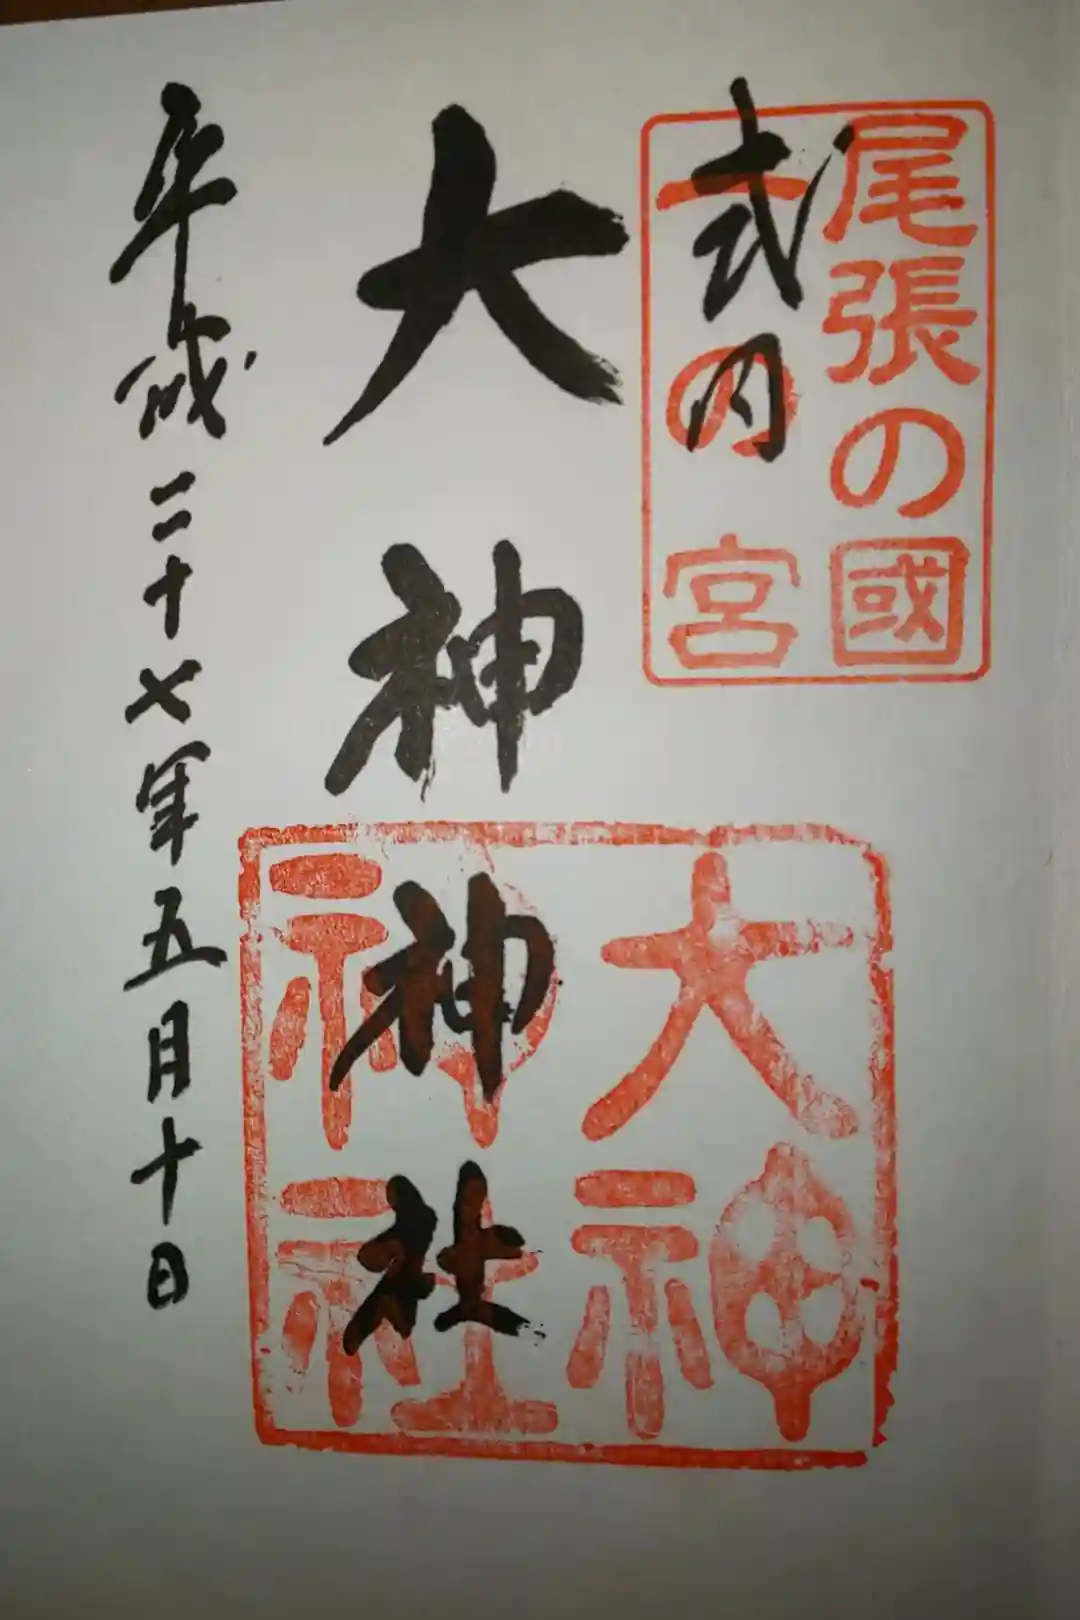 尾張の國
一の宮
式内
大神神社
大神
神社
平成二十七年五月十日